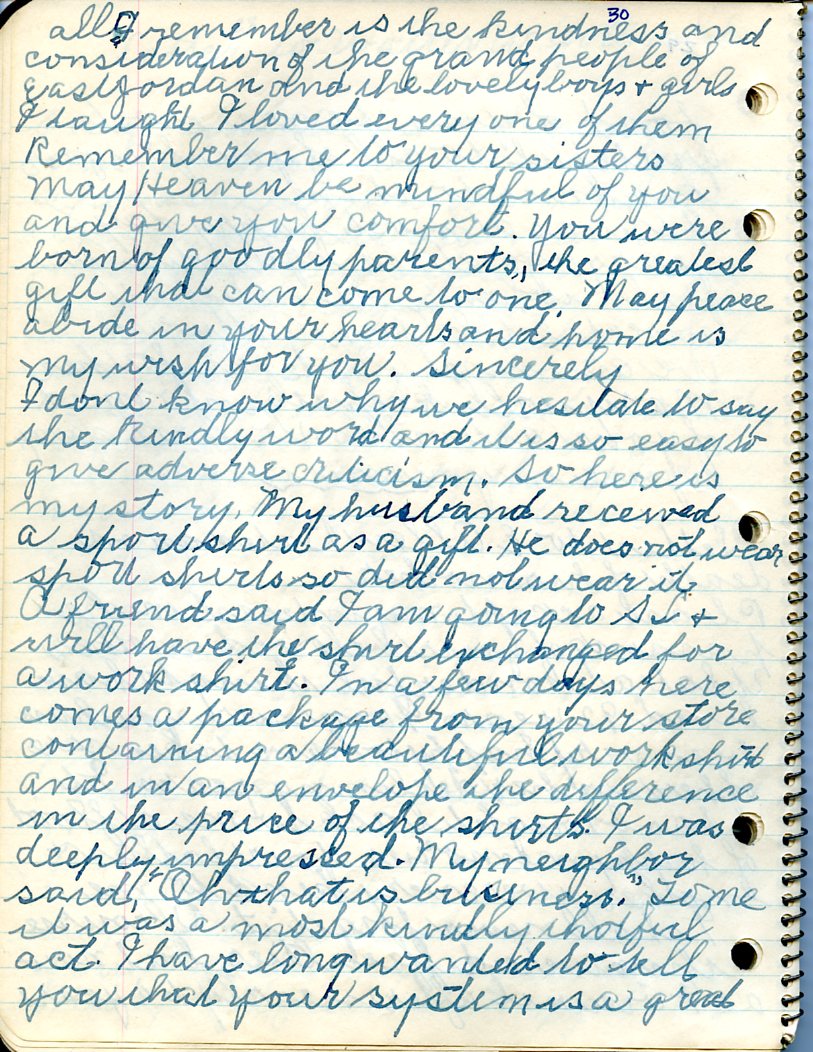 30
all I remember is the kindness and
consideration of the grand people of
East Jordan and the lovely boys + girls
I taught I loved every one of them
Remember me to your sisters
May Heaven be mindful of you
and give you comfort. You were
born of goodly parents, the greatest
gift that can come to one. May peace
abide in your hearts and home is
my wish for you. Sincerely
I dont know why we hesitate to say
the kindly word and it is so easy to
give adverse criticism. So here is
my story. My husband received
a sport shirt as a gift. He does not wear
sport shirts so did not wear it
A friend said I am going to S.L +
will have the shirt exchanged for
a work shirt. In a few days here
comes a package from your store
containing a beautiful work shirt
and in an envelope the difference
in the price of the shirts. I was
deeply impressed. My neighbor
said, "Oh that is business." To me
it was a most kindly thotful
act. I have long wanted to tell
you that your system is a great